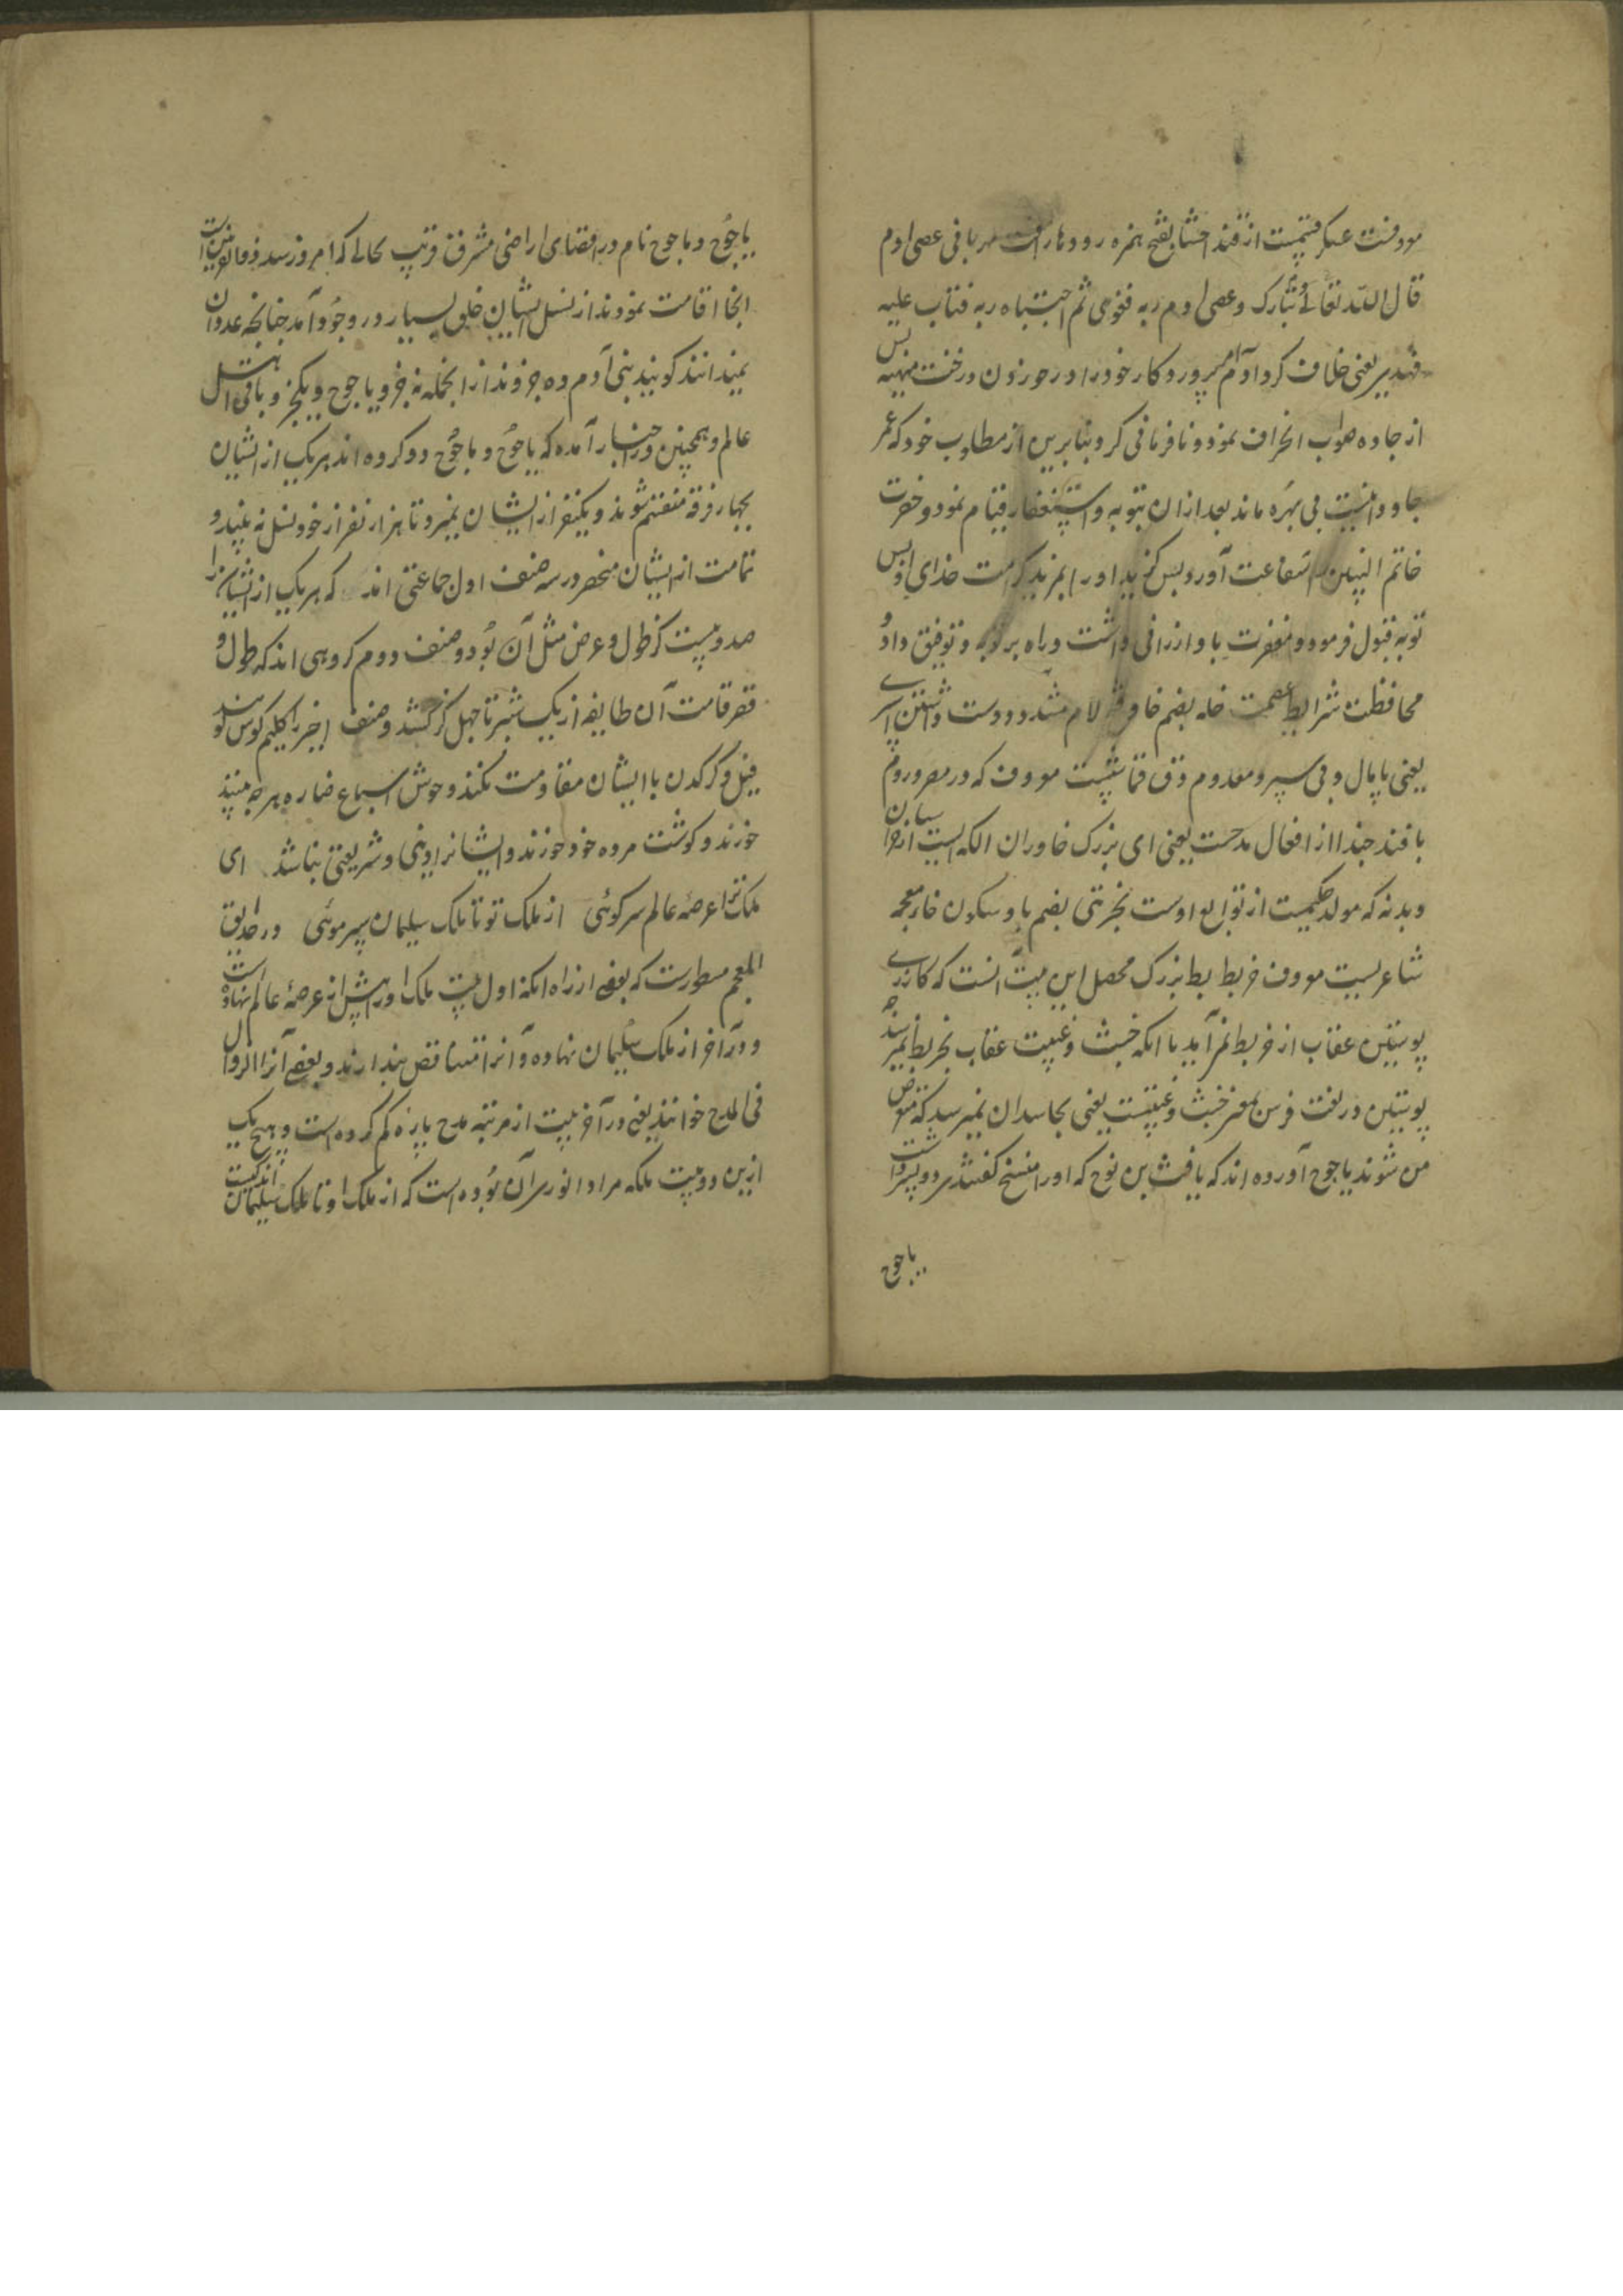 معروفست عسکر قیمیست از قند احشا بفتح همزه رودها باقی عصی ادم
قال الله تعالی و تبارک وعصی ادم ربه فغوی ثم اجتباه ربه فتاب علیه
فهدی یعنی خلاف کرد آدم امر پروردکار خود را در خوردن درخت منهیه پس
از جاده صواب انحراف نمود و نافرمانی کرد بنابرین از مطلوب خود که عمر
جاودانیست بی بهره ماند بعد ازان بتوبه و استغفار قیام نمود و حضرت
خاتم النبیین را شفاعت آورد پس کزید او را بمزید کرامت خدای او پس
توبه قبول فرمود و مغفرت باو ارزانی داشت و راه برد به و توفیق داد و
محافظت شرایط عصمت خله بضم خا و لام مشدد دوست داشتن پی سپر
یعنی پایمال و فی سپر و معدوم دق قماشیست معروف که در مصر و روم
بافند حبذا از افعال مدحست یعنی ای بزرک خاوران الکه ایست از خراسان
و بدنه که مولد حکیمست از توابع اوست بختری بضم با و سکون خاء معجمه
شاعریست معروف خربط بط بزرک محصل این بیت آنست که کارزری
پوستین عقاب از خربط نمر آید با انکه خبث و غیبت عقاب بخربط نمیرسد چه
پوستین در لغت فرس بمعنی خبث و غیبتست یعنی بحاسدان نمیرسد که متعرض
من شوند یاجوج آورده اند که یافث بن نوح که اورا منسخ کفتندی دو پسر داشت
یاجوج
یاجوج و ماجوج نام در اقصای اراضی مشرق قریب بحالی که امروز سد ذوالقرنین است
انجا اقامت نمودند از نسل ایشان خلق بسیار در وجود آمد چنانچه عدد آن
نمیدانند کویند بنی آدم ده جزوند از انجمله نه جزو یاجوج و یکجزو باقی اهل
عالم و همچنین در اخبار آمده که یاجوج و ماجوج دو کروه اند هریک از ایشان
بچهار فرقه منقسم شوند و یکنفر از ایشان نمیرد تا هزار نفر از خود نسل نه بیند و
تمامت ازیشان منحصر در سه صنف اول جماعتی اند که هریک از ایشانرا
صد و بیست کز طول و عرض مثل آن بود و صنف دوم کروهی اند که طول و
قصر قامت آن طایفه از یک شبر تا چهل کز کشد و صنف اخیر کلیم کوش کویند
فیل و کرکدن با ایشان مقاومت نکند و وحوش و سباع ضاره هرچه بینند
خورند و کوشت مرده خود خورند و ایشانرا دینی و شریعتی نباشد ای
ملک ترا عرصه عالم سر کوئی از ملک تو تا ملک سلیمان سر موئی در حدایق
المعجم مسطورست که بعضی از راه انکه اول بیت ملک او را بیش از عرصه عالم نهاده است
و در آخر از ملک سلیمان نهاده و آنرا متناقص پندارند و بعضی آنرا النزول
فی المدح خوانند یعنی در آخر بیت از مرتبه مدح پاره کم کرده است و هیچ یک
ازین دو نیست بلکه مراد انوری آن بوده است که از ملک او تا ملک سلیمان اندکیست